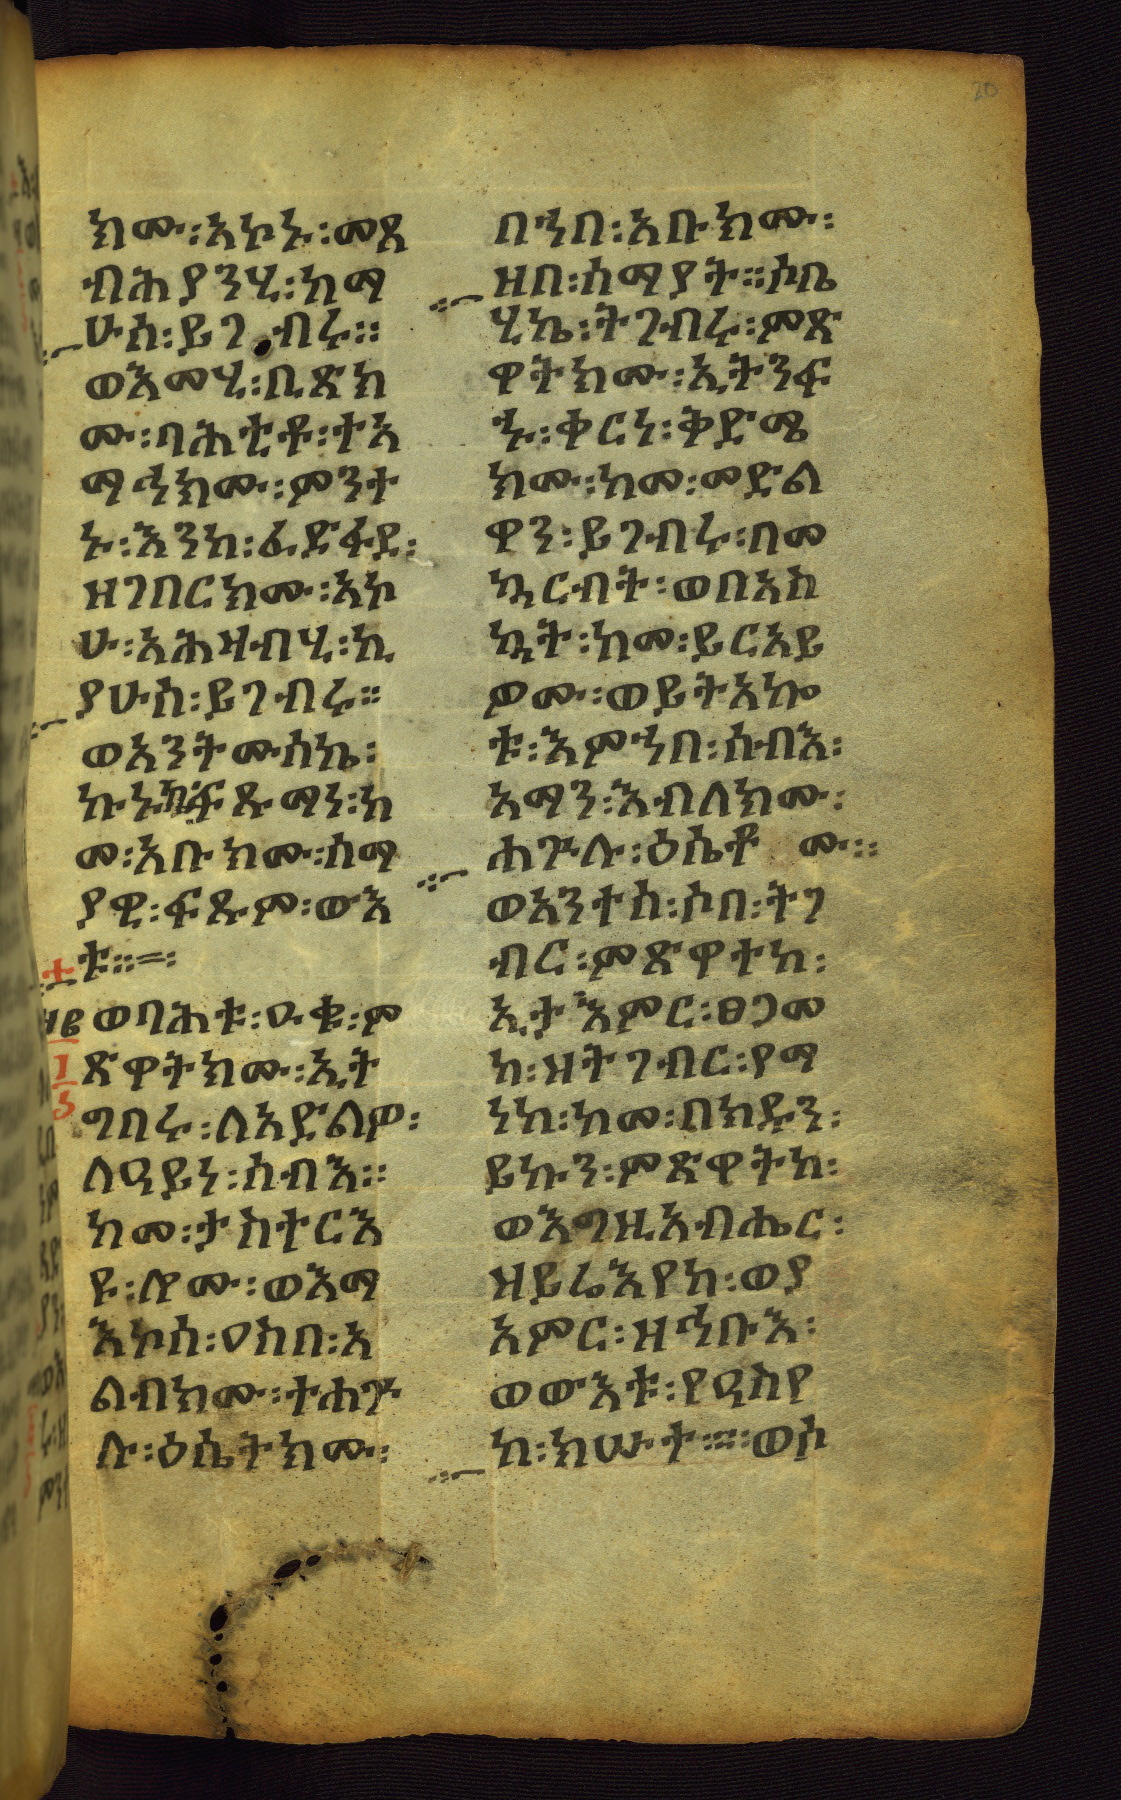 20
ክሙ፡አኮኑ፡መጸ
ብሕያንሂ፡ከማ
ሁሰ፡ይገብሩ።
ወእመሂ፡ቢጽክ
ሙ፡ባሕቲቶ፡ተአ
ማኅክሙ፡ምንተ
ኑ፡እንከ፡ፈድፋደ፡
ዘገበርክሙ፡አኮ
ሁ፡አሕዛብሂ፡ኪ
ያሁሰ፡ይገብሩ።
ወአንትሙሰኬ፡
ኩኑ፡ፍጹማነ፡ከ
መ፡አቡክሙ፡ሰማ
ያዊ፡ፍጹም፡ውእ
ቱ።=፡
ወባሕቱ፡ዑቁ፡ም
ጽዋትክሙ፡ኢት
ግበሩ፡ለአድልዎ፡
ለዓይነ፡ሰብእ።
ከመ፡ታስተርእ
ዩ፡ሎሙ፡ወእማ
እኮሰ፡ዐስበ፡አ
ልብክሙ፡ተሐጕ
ሉ፡ዕሴትክሙ፡
በኀበ፡አቡክሙ፡
ዘበ፡ሰማያት።ሶበ
ሂኬ፡ትገብሩ፡ምጽ
ዋትክሙ፡ኢትንፍ
ኁ፡ቀርነ፡ቅድሜ
ክሙ፡ከመ፡መድል
ዋን፡ይገብሩ፡በመ
ኳርብት፡ወበአስ
ኳት፡ከመ፡ይርአይ
ዎሙ፡ወይትአኰ
ቱ፡እምኀበ፡ሰብእ፡
አማን፡እብለክሙ፡
ሐጕሉ፡ዕሴቶ ሙ።
ወአንተሰ፡ሶበ፡ትገ
ብር፡ምጽዋተከ፡
ኢታእምር፡ፀጋመ
ከ፡ዘትገብር፡የማ
ንከ፡ከመ፡በክዱን፡
ይኩን፡ምጽዋትከ፡
ወእግዚአብሔር፡
ዘይሬእየከ፡ወያ
አምር፡ዘኅቡእ፡
ወውእቱ፡የዓስየ
ከ፡ክሡተ።፡ወሶ